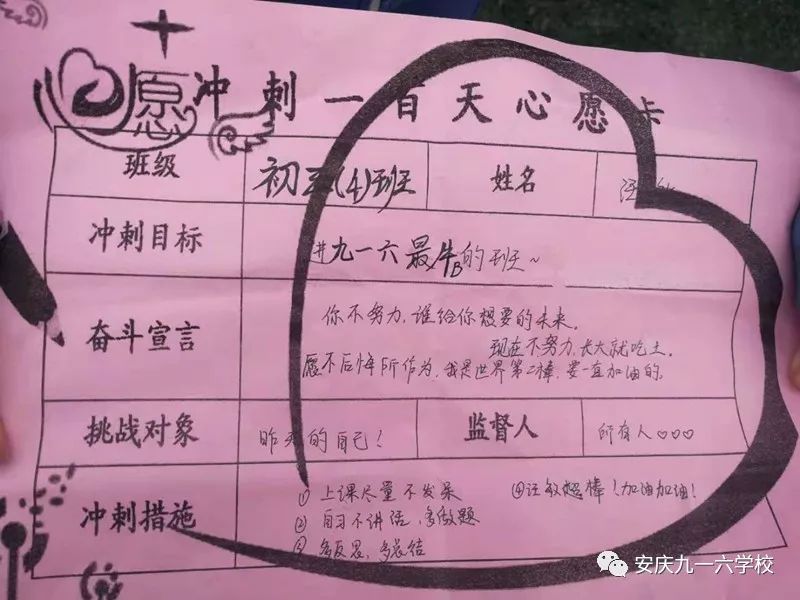 愿
冲刺一百天心愿卡
班级 初三(4)班 姓名 汪
冲刺目标 进九一六最牛B的班~
奋斗宣言 你不努力,谁给你想要的未来。
现在不努力,长大就吃土。
愿不后悔所作为,我是世界第二棒,要一直加油的。
挑战对象 昨天的自己! 监督人 所有人♡♡♡
冲刺措施 ①上课尽量不发呆 ④汪敏超棒!加油加油!
②自习不讲话,多做题
③多反思,多总结
安庆九一六学校